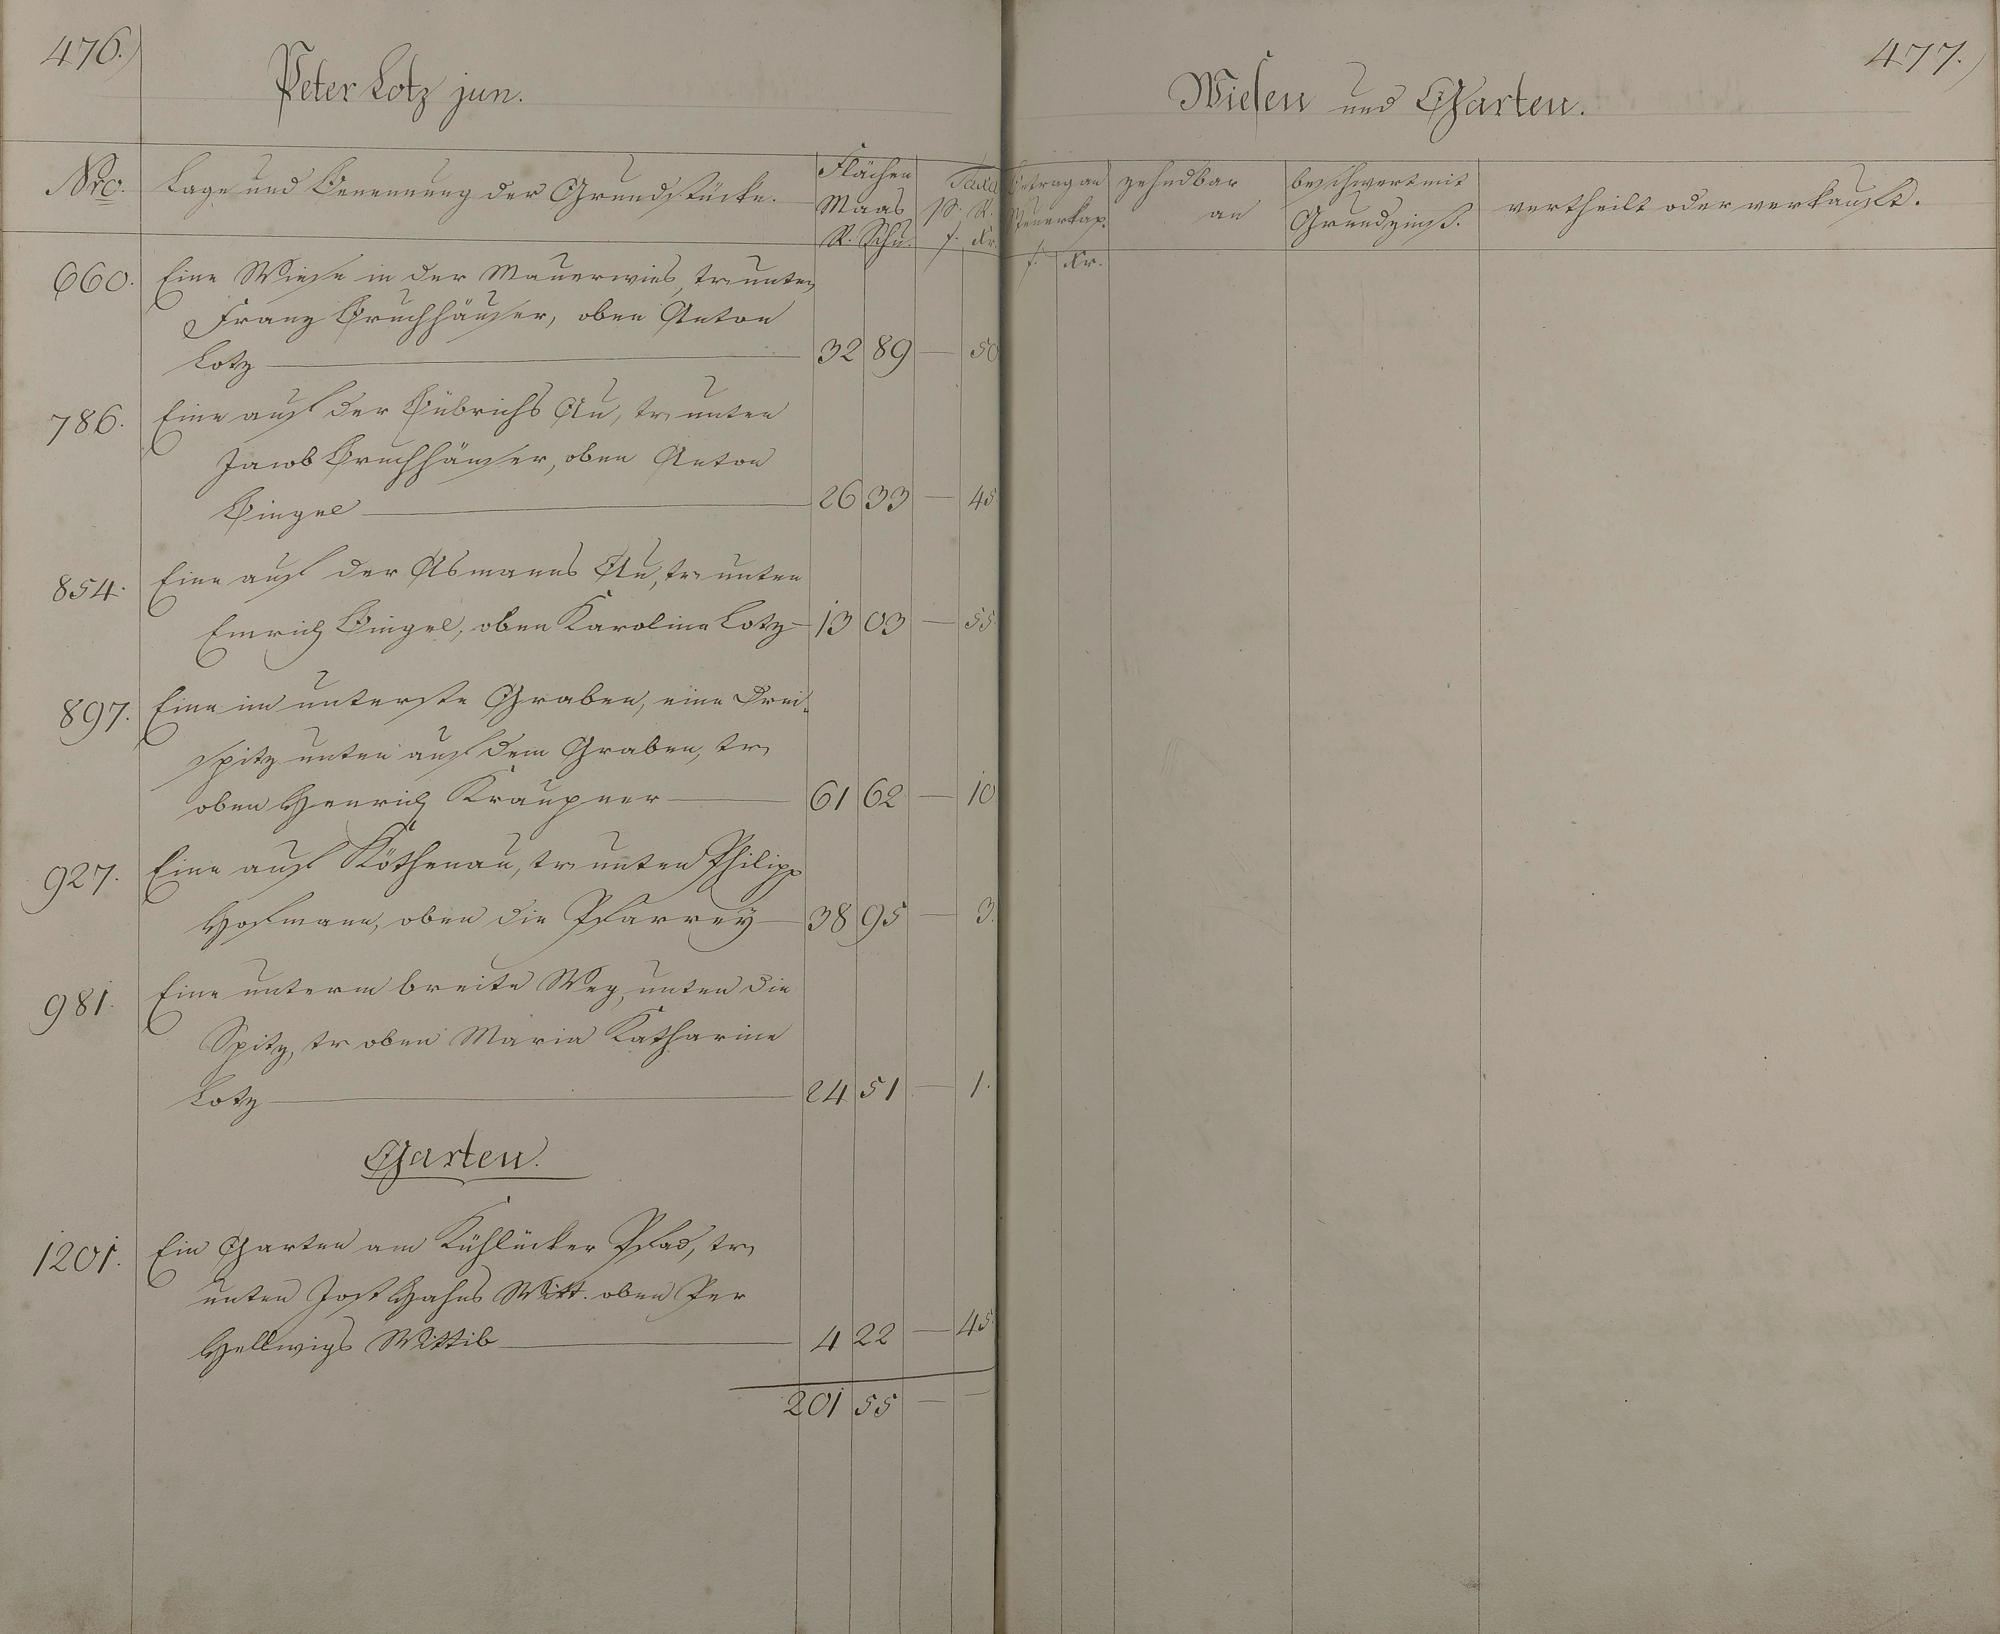 476.)
Peter Lotz jun.
Nro. Lage und Benennung der Grundstücke. Flächen Maas R. Schu. Taxa p. R. f. Kr.
660. Eine Wiese in der Mauerwies, tr unten
Franz Bruchhäuser, oben Anton
Lotz — 32 89 — 50
786. Eine auf der Hübrichs Au, tr unten
Jacob Bruchhäuser, oben Anton
Bingel — 26 33 — 45
854. Eine auf der Asmanns Au, tr unten
Emrich Bingel, oben Karolina Lotz — 13 03 — 55
897. Eine im unterste Graben, eine Drei-
spitz unten auf dem Graben, tr
oben Henrich Kraupner — 61 62 — 10
927. Eine auf Köthenau, tr unten Philipp
Hofmann, oben die Pfarrey — 38 95 — 3.
981. Eine unterm breite Weg, unten die
Spitz, tr oben Maria Katharine
Lotz — 24 51 — 1.
Garten.
1201. Ein Garten am Kühlücker Pfad, tr
unten Jost Hahns Witt. oben Per
Hellwigs Wittib — 4 22 — 45.
201 55 — —
477.)
Wiesen und Garten.
Betrag an Steuerkap. f. Kr. zehndbar an beschwert mit Grundzinß. vertheilt oder verkauft.